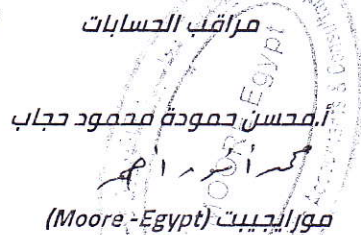 مراقب الحسابات
أ.محسن حمودة محمود حجاب
مورايجيبت (Moore -Egypt)